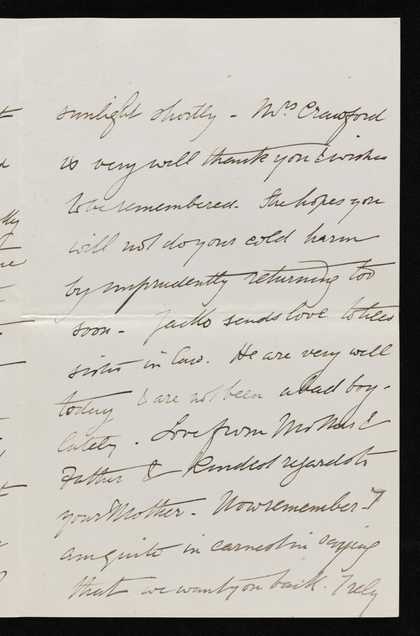 sunlight shortly – Mrs. Crawford
is very well thank you & wishes
to be remembered. She hopes you
will not do your cold harm
by imprudently returning too
soon – Jacko sends love to his
sister in law. He are very well
today & are not been a bad boy –
lately. Love from Mother &
Father & kindest regards to
your Mother – Now remember I
am quite in earnest in saying
that we want you back. I rely